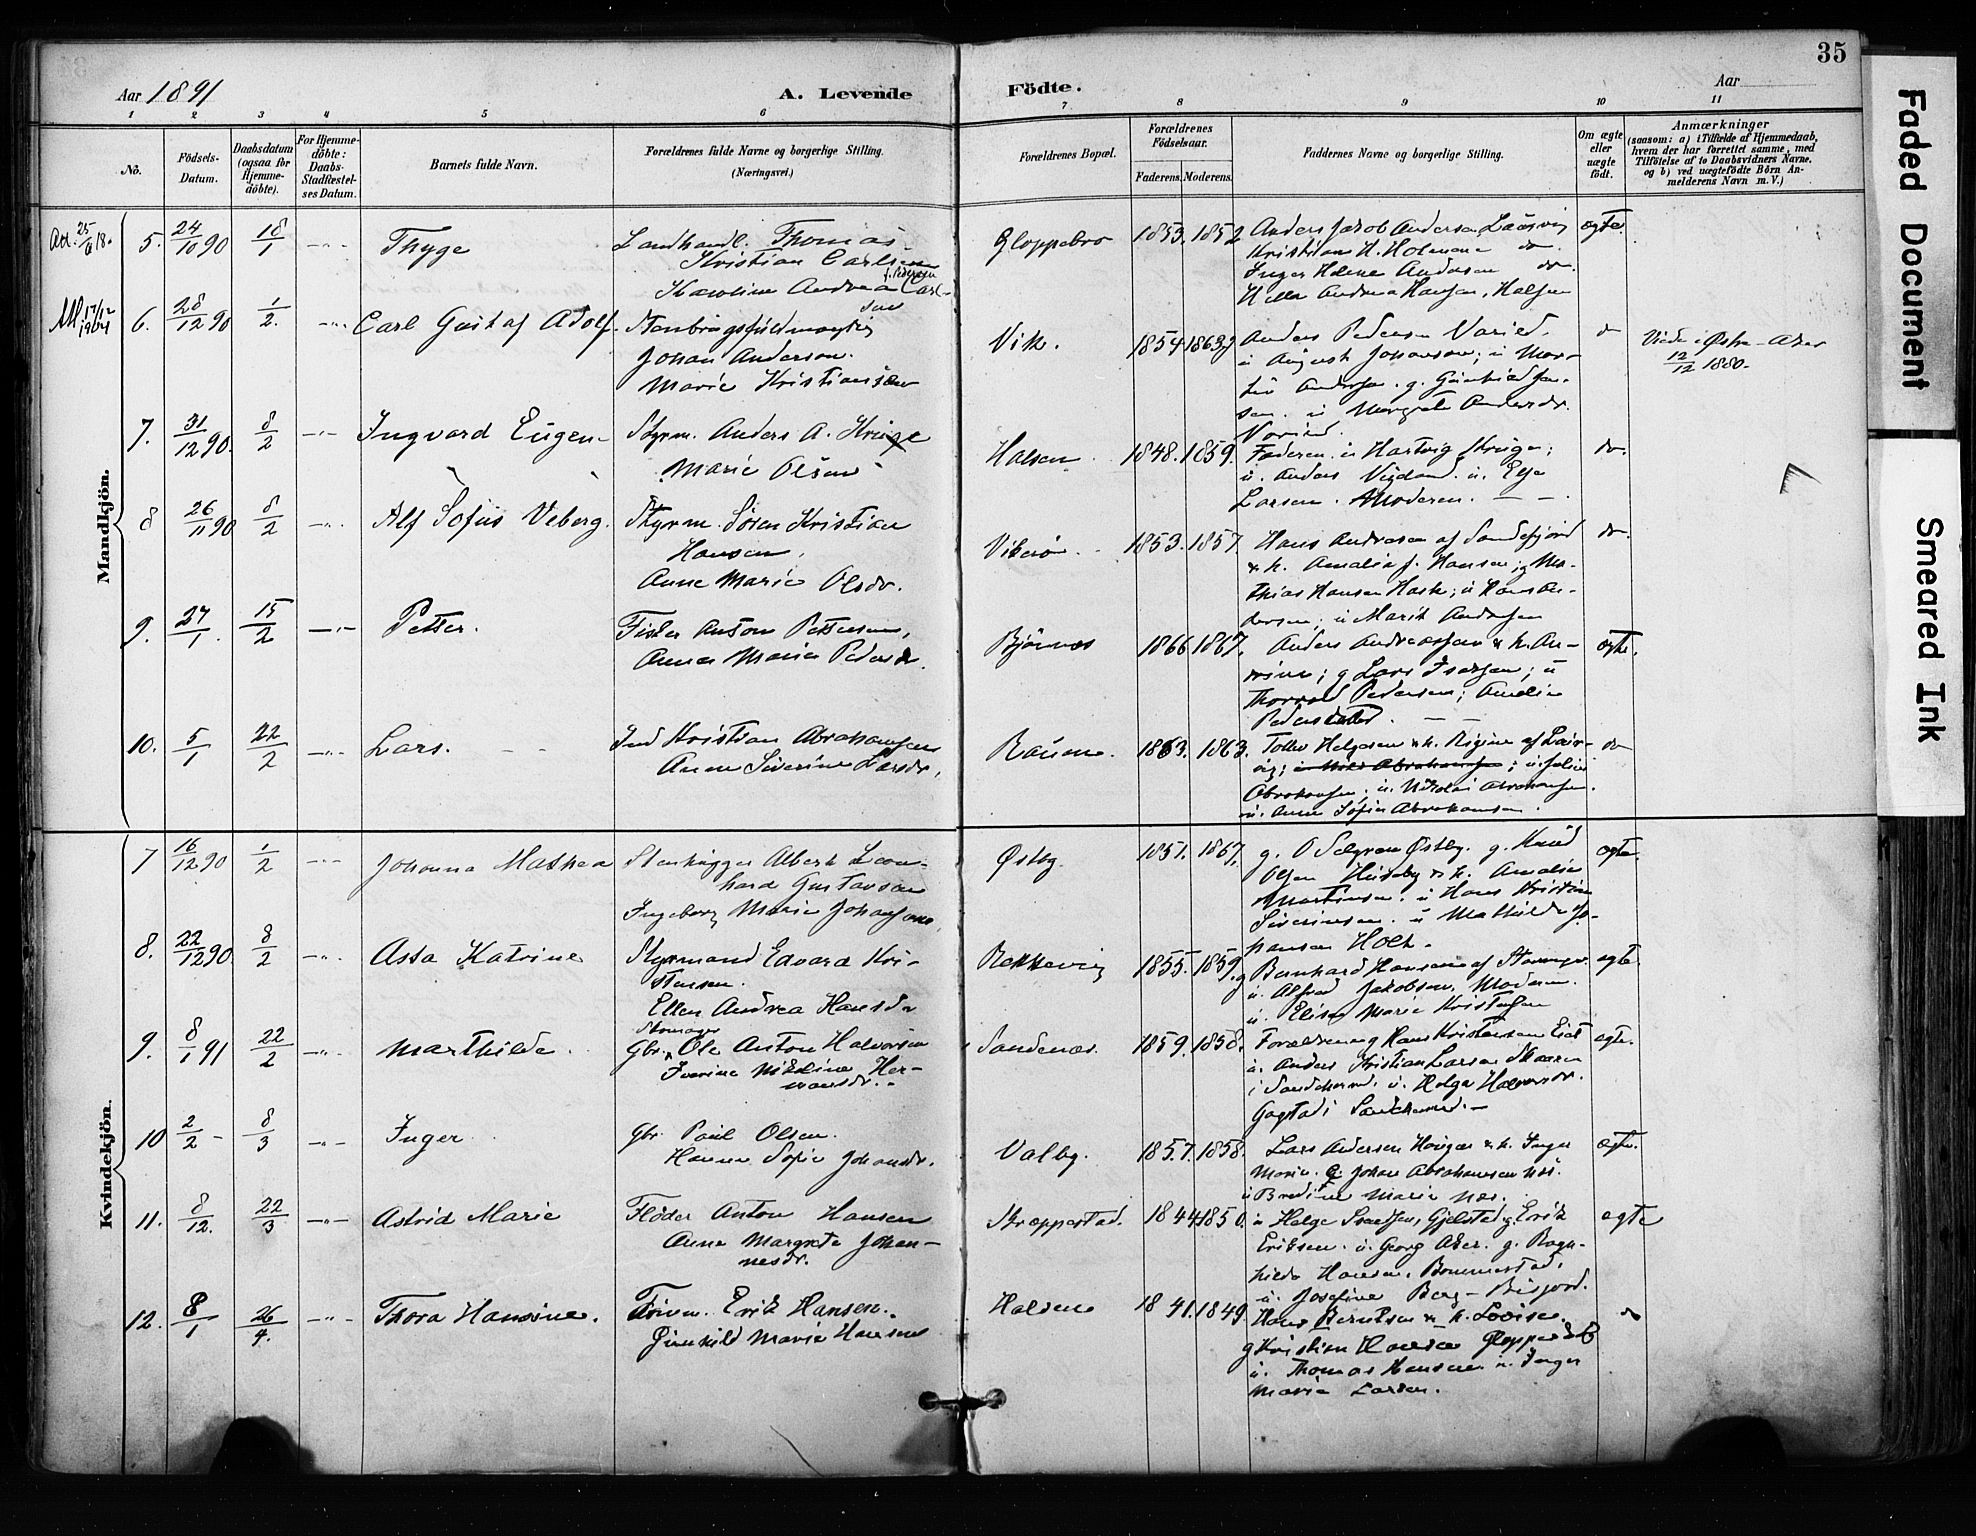 35
Aar 1891
A. Levende
Födte.
Aar
1 2 3 4 5 6 7 8 9 10 11
No.
Födsels-Datum.
Daabsdatum (ogsaa for Hjemme-döbte).
For Hjemme-döbte: Daabs-Stadfæstel-ses Datum.
Barnets fulde Navn.
Forældrenes fulde Navne og borgerlige Stilling. (Næringsvei.)
Forældrenes Bopæl.
Forældrenes Födselsaar.
Faderens. Moderens.
Faddernes Navne og borgerlige Stilling.
Om ægte eller uægte födt.
Anmærkninger
(saasom: a) i Tilfælde af Hjemmedaab,
hvem der har forrettet samme, med
Tilföielse af to Daabsvidners Navne.
og b) ved uægtefödte Börn An-
melderens Navn m. V.)
Mandkjön.
5. 24/10 90 18/1 -"- Thyge
Landhandl. Thomas
Kristian Carlsen
f. Pedersen
Karoline Andrea Carl-
sen
Gloppebro 1853. 1852
Anders Jakob Andersen Laurvig
Kristian H. Holmene do.
Inger Helene Andersen do.
Hilla Andrea Hansen, Halsen
ægte.
Att. 17/12 1904
6. 28/12 90 1/2. -"- Carl Gustaf Adolf.
Stenbrugsfuldmægtig
Johan Anderson.
Marie Kristiansen
Vik. 1854 1863
Anders Pedersen Varild.
u August Johanson; u Mar-
tin Andersen. g. Gunhild Jen-
sen. u Margrete Andersdr.
Varild.
do
Viede i Østre-Aker
12/12 1880.
7. 31/12 90. 8/2 -"- Ingvard Eugen-
Styrm. Anders A. Krüge
Marie Olsen
Halsen 1848. 1859.
Faderen. u Hartvig Krüge;
u. Anders Vigdand. u. Else
Larsen. Moderen. — —
do.
8 26/11 90 8/2 -"- Alf Sofus Veberg.
Styrm. Sören Kristian
Hansen,
Anne Marie Olsdr.
Vikerön 1853. 1857
Hans Andresen af Sandefjord
& h. Amalia f. Hansen; g Ma-
thias Hansen Hask; u Hans An-
dersen; u Marit Andersen
do.
9. 27/1. 15/2 -"- Petter.
Fisker Anton Pettersen,
Anna Maria Pedersdr.
Bjönnes 1866 1867.
Anders Andreassen & h. An-
drine; g Lars Isaksen; u
Thorvald Pedersen; Amalie
Pedersdatter. — —
ægte.
10. 5/1 22/2 -"- Lars.
Ind Kristian Abrahamsen
Anne Siverine Larsdr.
Raune. 1863. 1863.
Tollev Helgesen & h. Regine af Laur-
vig; u. Julius
Abrahamsen; u. Nikolai Abrahamsen
u. Anne Sofie Abrahamsen.
do
Kvindekjön.
7 16/12 90 1/2 -"- Johanna Mathea
Stenhugger Albert Leon-
hard Gustavson
Ingeborg Marie Johansen,
Østby. 1851. 1867,
g. O Selgren Østby. g. Knud
Olsen Huseby & h. Amalie
Martinsen. u Hans Kristian
Siverinsen. u Mathilde Jo-
hansen Holt.
ægte.
8. 22/12 90 8/2 -"- Assa Katrine
Styrmand Edvard Kri-
stensen.
Ellen Andrea Hansdr
Rekkevig 1855. 1859.
g Bernhard Hansen af Stavanger.
u. Alfred Jakobsen, Moderen.
u. Elise Marie Kristensen
ægte.
9. 8/1 91 22/2 -"- Marthilde.
Skomager
Gbr. Ole Anton Halvorsen
Iverine Nikoline Her-
mansdr.
Sandenæs. 1859. 1858.
Forældrene g Hans Kristensen Eiet
u. Anders Kristian Larsen Skaaren
i Sandeherred. u. Helga Halvorsdr.
Gogstad i Sandeherred. —
ægte.
10 2/2 - 8/3 -"- Inger
Gbr. Paul Olsen.
Hanna Sofie Johansdr.
Valby. 1857. 1858.
Lars Andersen Haugen & h. Inger
Marie. g. Johan Abrahamsen Næs.
u Bredine Marie Næs.
ægte.
11. 8/12. 22/3 -"- Astrid Marie
Flöder Anton Hansen
Anne Margrete Johan-
nesdr.
Skreppestad. 1844 1850.
u Helge Gjelstad g. Erik
Eriksen. u. Georg Aker. g. Ragn-
hilda Hansen. Bommestad.
u. Josefine Berg -
ægte
12. 8/1 26/4. -"- Thora Hansine.
Erik Hansen.
Gunhild Marie Hansen
Halsen 1841. 1849
Hans Berntsen & h. Lovise.
g Kristian Hansen
u. Thomas Hansen. u. Inger
Marie Larsen.
do
Faded Document
Smeared Ink